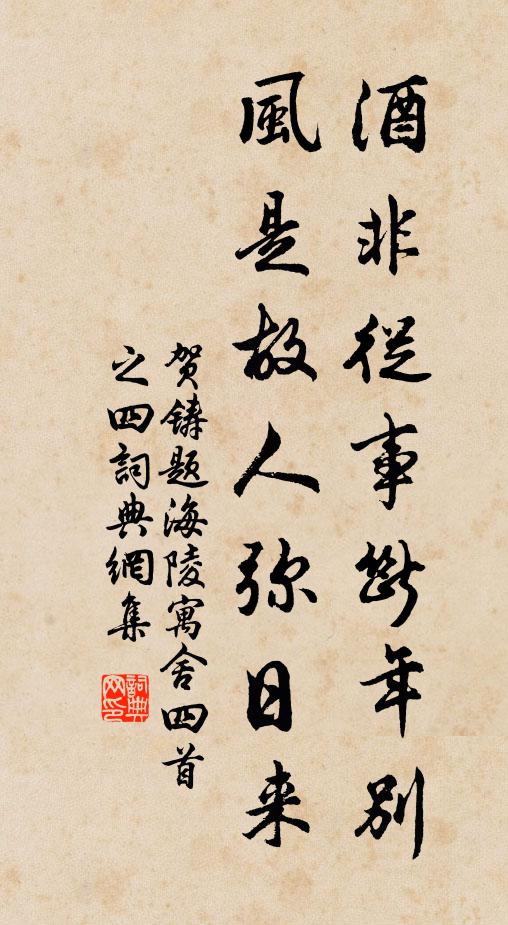 酒非從事斷年別
風是故人弥日来
贺鑄题海陵寓舍四首
之四詞典網集
詞典網印